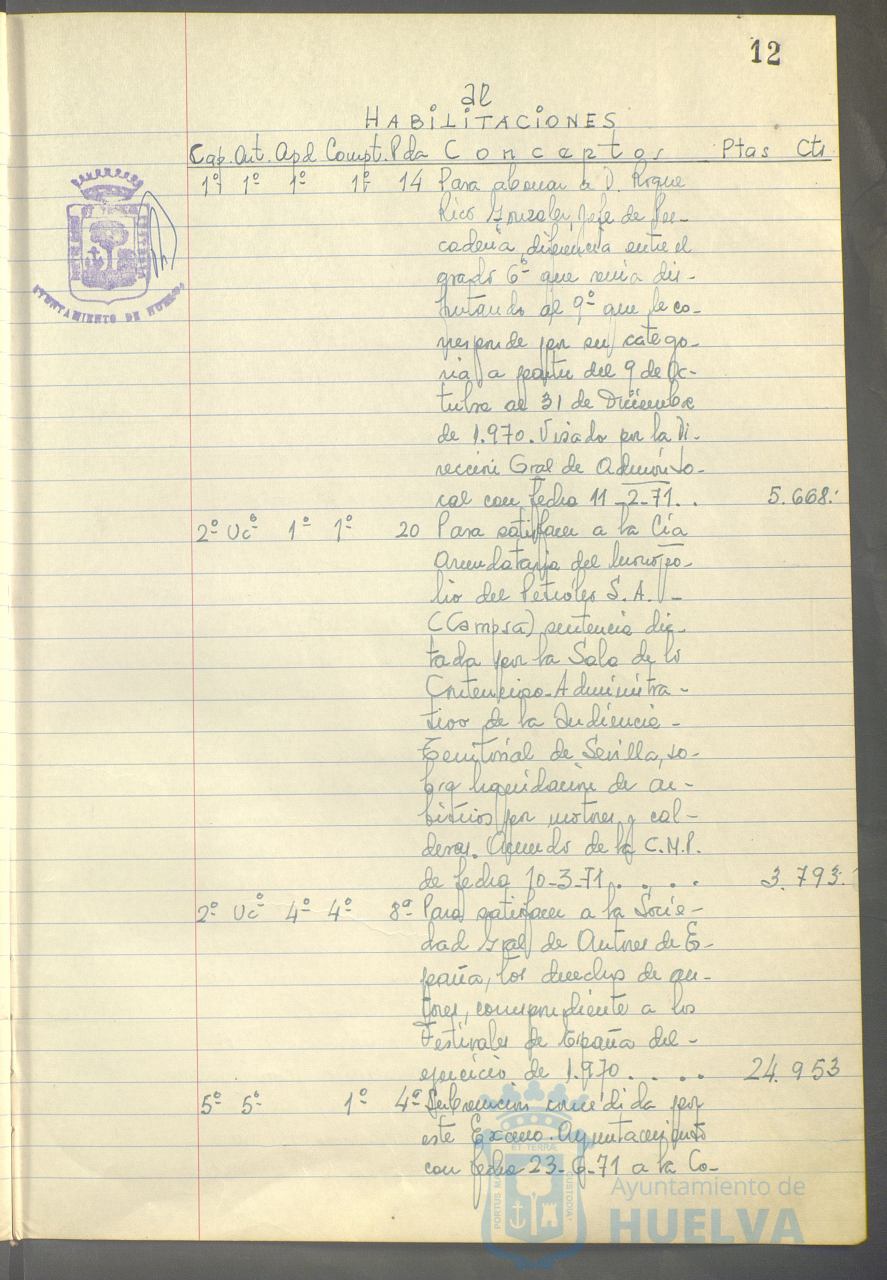 12
al
HABILITACIONES
Cap. Art. Apd. Compt. Pda Conceptos Ptas Cts
1º 1º 1º 1º 14 Para abonar a D. Roque
Rico Gonzalez, Jefe de Re-
cadería, diferencia entre el
grado 6º que venia dis-
frutando al 9º que le co-
rresponde por su catego-
ria a partir del 9 de Oc-
tubre al 31 de Diciembre
de 1.970. Visado por la Di-
rección Gral de Admón Lo-
cal con fecha 11-2-71. . 5.668.-
2º Uc° 1º 1º 20 Para satisfacer a la Cía
Arrendataria del Monopo-
lio del Petróleo S.A. -
(Campsa) sentencia dic-
tada por la Sala de lo
Contencioso-Administra-
tivo de la Audiencia -
Territorial de Sevilla, so-
bre liquidación de ar-
bitrios por motores y cal-
deras. Acuerdo de la C.M.P.
de fecha 10-3-71. . . . 3.793.
2º Uc° 4º 4º 8ª Para satisfacer a la Socie-
dad Gral de Autores de E-
paña, los derechos de au-
tores, correspondiente a los
Festivales de España del -
ejercicio de 1.970 . . . . 24.953
5º 5º 1º 4ª Subvención concedida por
este Excmo. Ayuntamiento
con fecha 23-6-71 a la Co-
AYUNTAMIENTO DE HUELVA
ET TERRAE
PORTUS MA
CUSTODIA
Ayuntamiento de
HUELVA